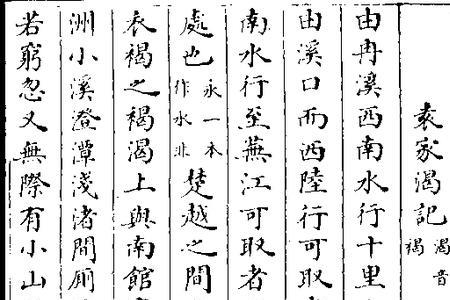 袁家渴記渴音褐
由冉溪西南水行十里
由溪口而西陸行可取
南水行至蕪江可取者
處也永一本作水非楚越之間
衣褐之褐渴上與南館
洲小溪澄潭淺渚間廁
若窮忽又無際有小山